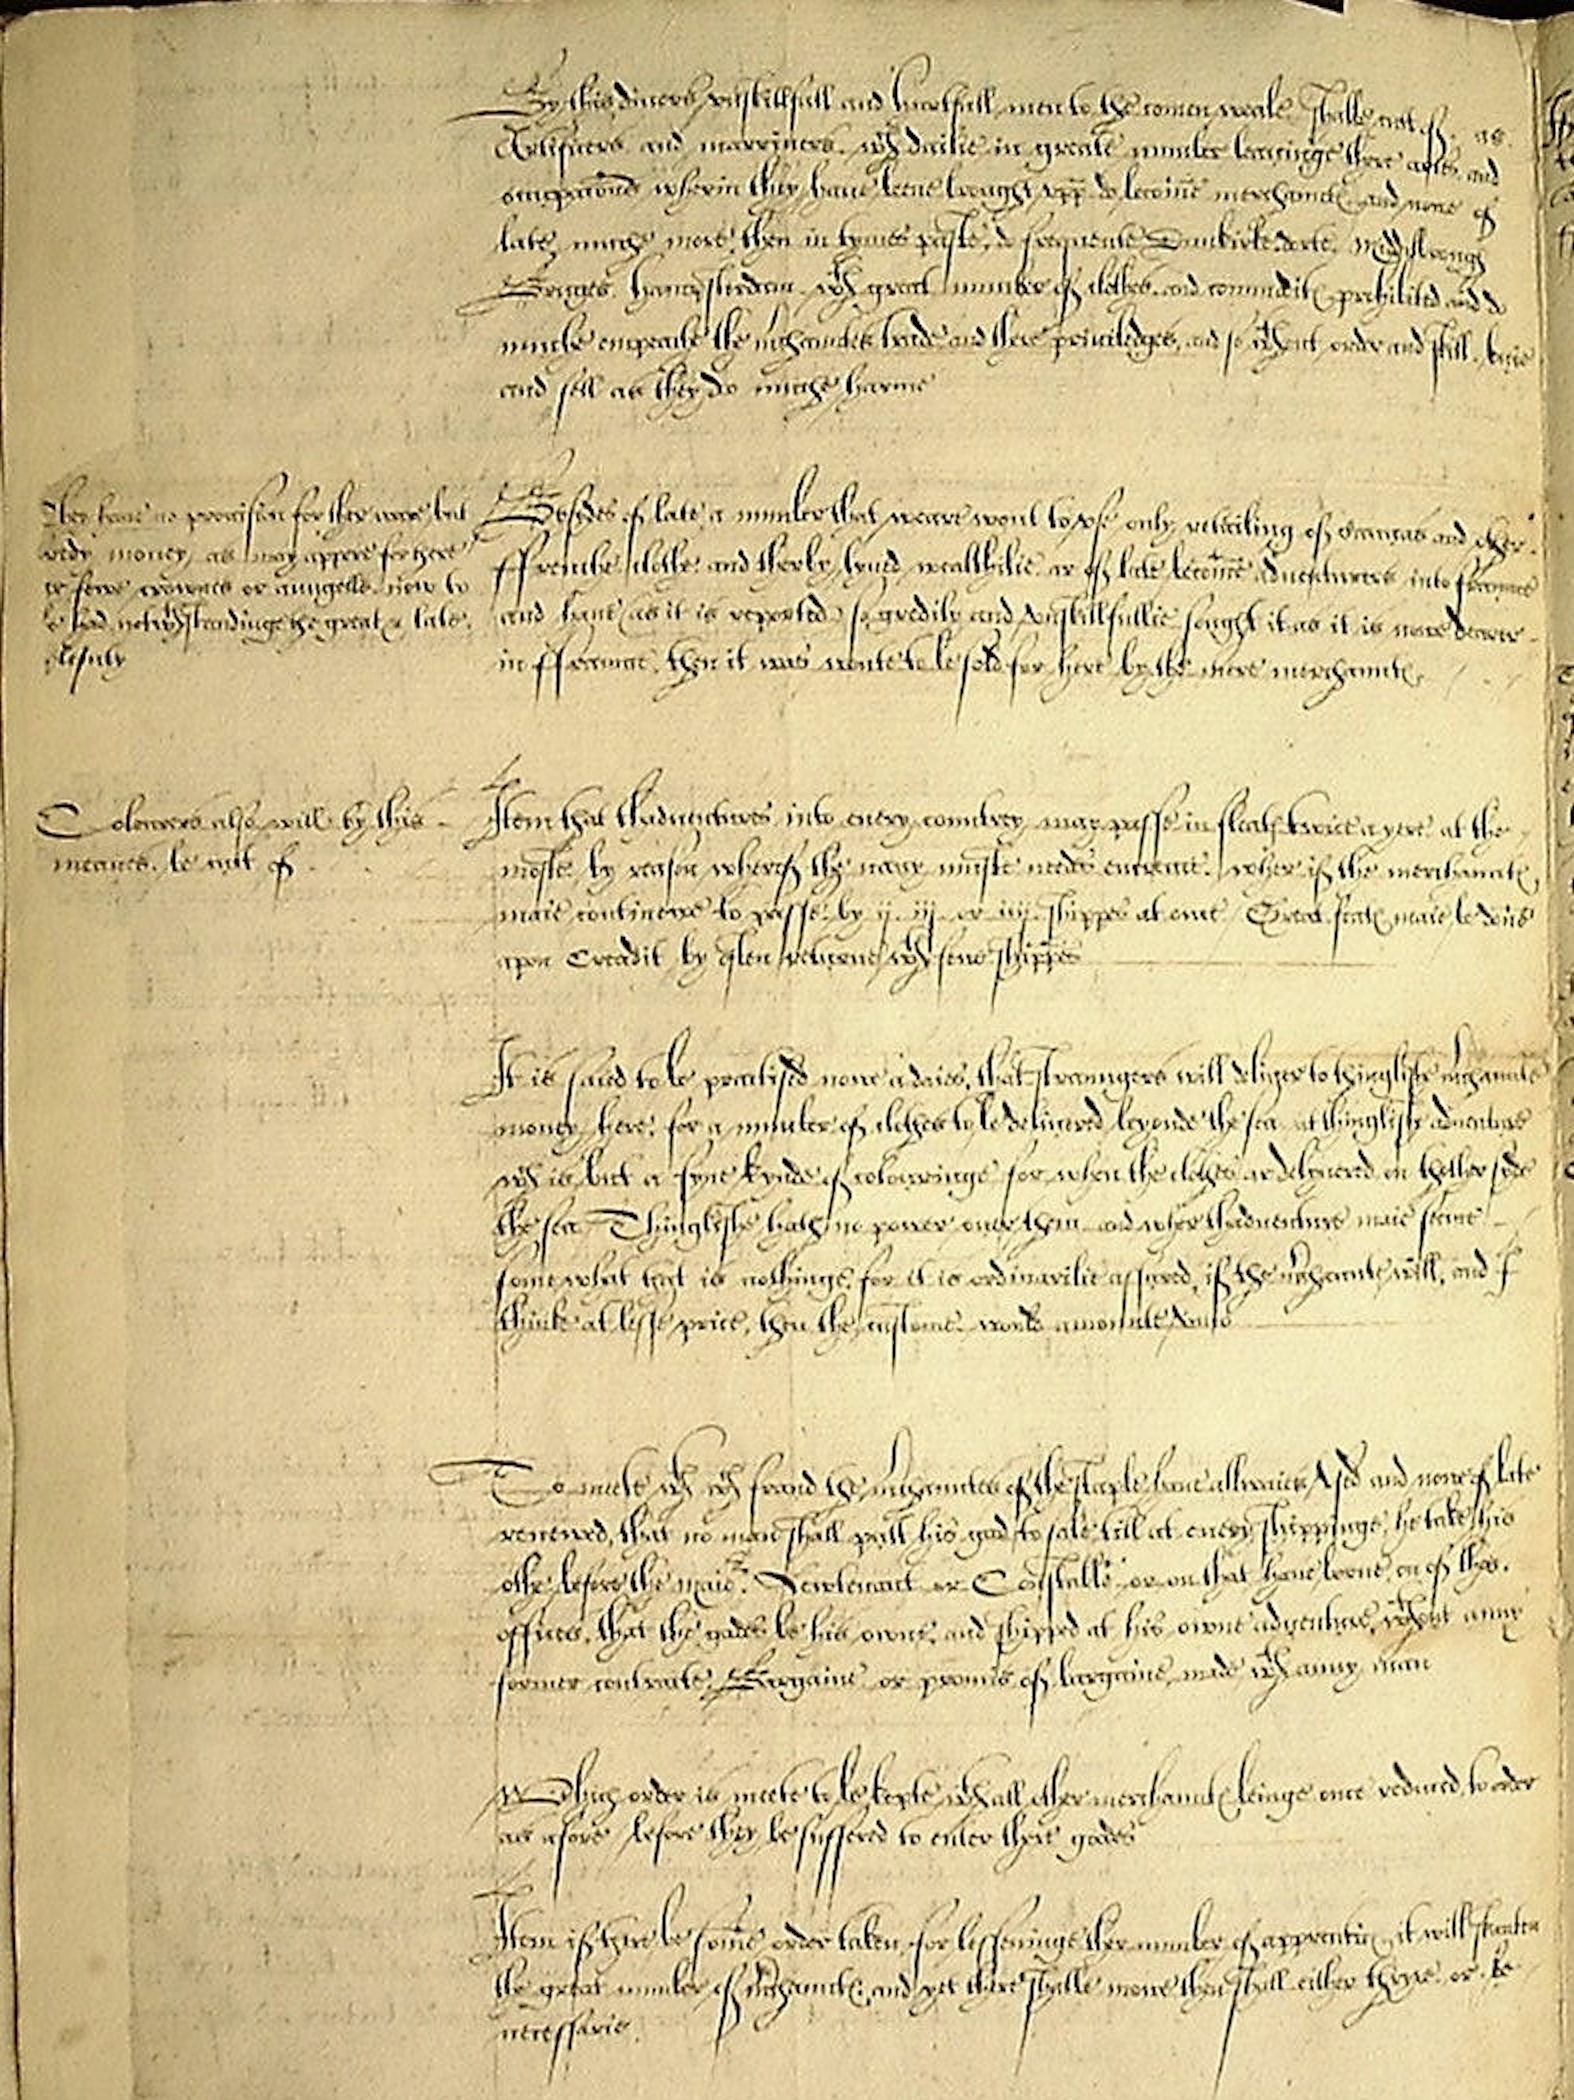 By this divers unskillfull and hurtfull men to the comen weale shalbe cut of, as
Artificers and marriners, wch dailie in greate number leavinge there artes and
occupacons wherin they have beene brought upp do become merchauntes and nowe of
late, muche more then in tymes paste, do frequente Dunkirke
Bruges, hamsterdam, wth great number of clothes, and commodities prohibited and do
muche empeache the mchauntes trade and there priviledges, and so wthout order and skill, buie
and sell as they do muche harme
They have no provision for ther ware, but
redy money, as may appere for there
be fewe crownes or aungells now to
be had notwthstandinge the great & late
plenty
Besydes of late a number that weare wont to use only retailing of Canvas and other
ffrenche clothe and therby lyved wealthilie, ar of late become adventurers into fraunce
and have (as it is reported) so gredily and unskillfullie sought it as it is nowe dearer
in ffraunce, then it was wonte to be sold for here by the mere merchauntes
Colowrers also will by this
meanes be cut of
Item that thadventurers into every countrey may passe in fleates twice a yere at the
moste by reason wherof the navy muste nedes encrease. where if the merchauntes
maie contineue to passe by ij. iij. or iiij. shippes at once Great feates maie be done
apon Creadit by often returne wth fewe shippes
It is saied to be practised nowe a daies, that straungers will deliver to thinglishe mchauntes
money here, for a number of clothes to be delivered beyonde the sea at thinglishe adventure
wch is but a fyne kynde of colowringe for when the clothes ar delyvered on thother syde
the sea Thinglishe hath no power over them and wher thadventure maie seeme
somewhat that is nothinge, for it is ordinarilie assured, if the mchaunte will, and I
thinke at lesse price, then the custome wolde amounte unto
To meete wth wch fraud the mchauntes of the staple have allwaies used and nowe of late
renewed, that no man shall putt his good to sale till at every shippinge, he take his
othe before the maior, Lewtenant or Constable or on that have borne on of thos
offices, that the goodes be his owne, and shipped at his owne adventure, wthout anny
former contracte, Bargaine or promis of bargaine, made wth anny man
Which order is meete to be kepte wth all other merchauntes beinge once reduced to order
as afore before they be suffered to enter there goodes
Item if there be some order taken for lesseninge ther number of apprentices it will shorten
the great number of mchauntes, and yet there shalbe more then shall either thryve or be
necessarie.